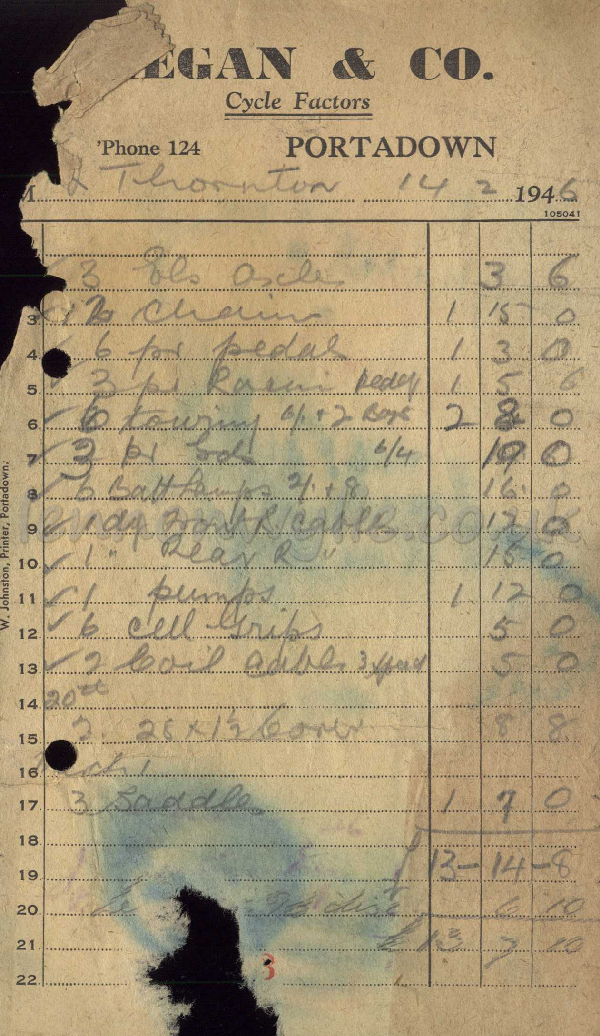 EGAN & CO.
Cycle Factors
'Phone 124 PORTADOWN
M Thornton 14 2 1946
105041
3 Axles 3 6
3 Chains 1 15 0
4 6 pr pedal 1 3 0
5 3 pr 1 5 6
6 6 touring 2 8 0
7 3 pr 6/4 19 0
8 6 Batt Lamps 16 0
9 1 dz Front R/ Cable 12 0
10 1 " Rear R " 15 0
11 1 pumps 1 12 0
12 6 Cell Grips 5 0
13 2 Coil Cable 3 5 0
14 20th
15 2 26 x 1½ Cover 8 8
16
17 3 Saddle 1 7 0
18
19 13-14-8
20 6 10
21 £ 13 7 10
22
3
W. Johnston, Printer, Portadown.